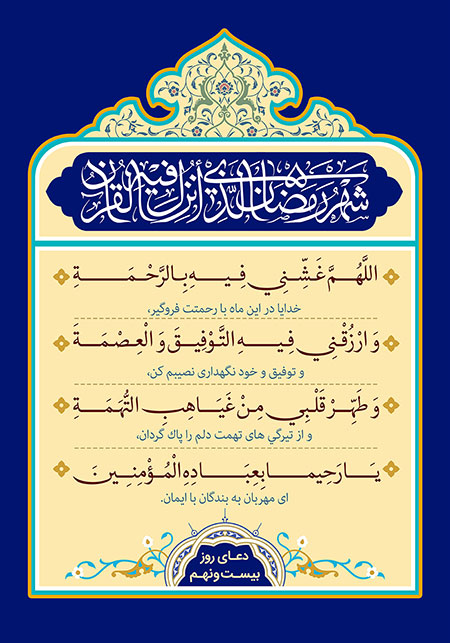 شهر رمضان الذي أنزل فيه القرآن
اللَّهُمَّ غَشِّنِي فِيهِ بِالرَّحْمَةِ
خدایا در این ماه با رحمتت فروگیر،
وَارْزُقْنِي فِيهِ التَّوْفِيقَ وَالْعِصْمَةَ
و توفیق و خود نگهداری نصیبم کن،
وَطَهِّرْ قَلْبِي مِنْ غَيَاهِبِ التُّهَمَةِ
و از تیرگي های تهمت دلم را پاك گردان،
يَا رَحِيما بِعِبَادِهِ الْمُؤْمِنِينَ
ای مهربان به بندگان با ایمان.
دعای روز
بیست‌ونهم